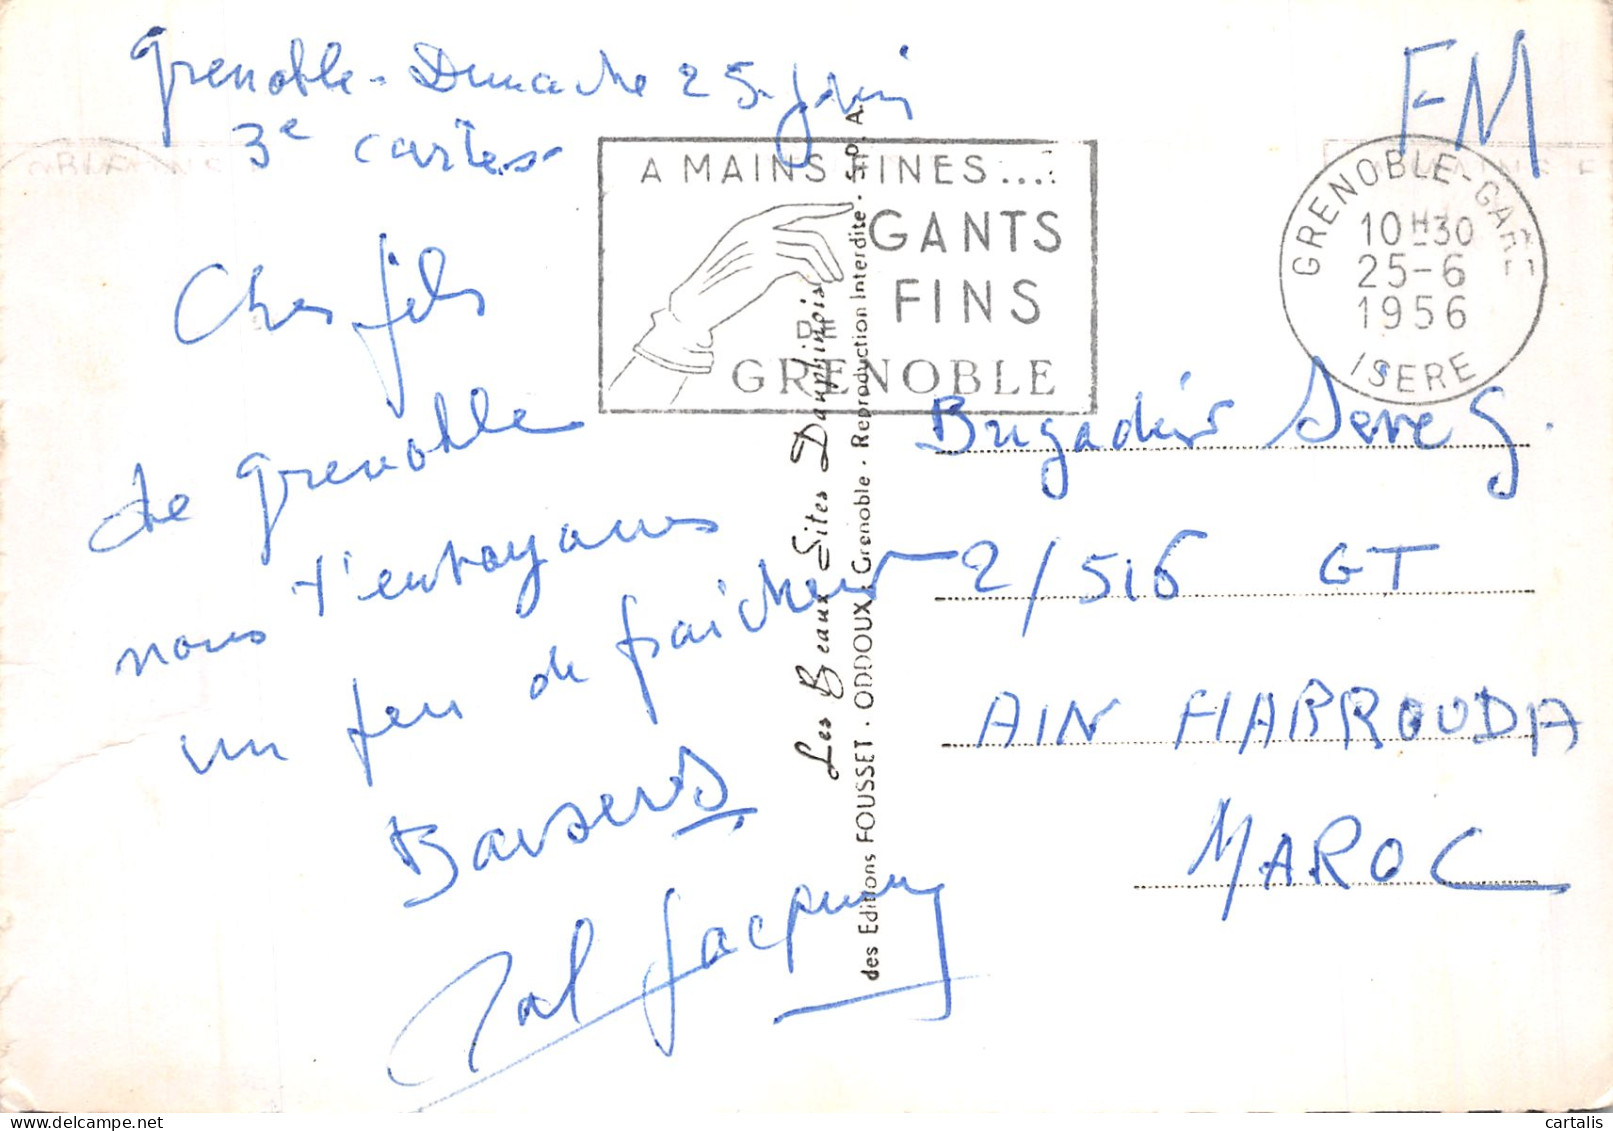 Grenoble - Dimanche 25 Juin
3e cartes
Cher fils
de Grenoble
nous t'envoyons
un peu de fraicheur
Baisers
Jacquemey
FM
A MAINS FINES....
GANTS
FINS
DE
GRENOBLE
GRENOBLE-GARE
10H30
25-6
1956
ISERE
Les Beaux Sites Dauphinois
des Editions FOUSSET - ODDOUX - Grenoble - Reproduction Interdite - S.p.A.
Brigadier Serve G.
2/516 GT
AIN HARROUDA
MAROC
cartalis